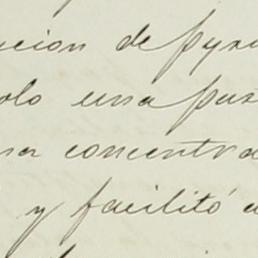 ucion de pyro
olo una par
na concentra
y facilitó a